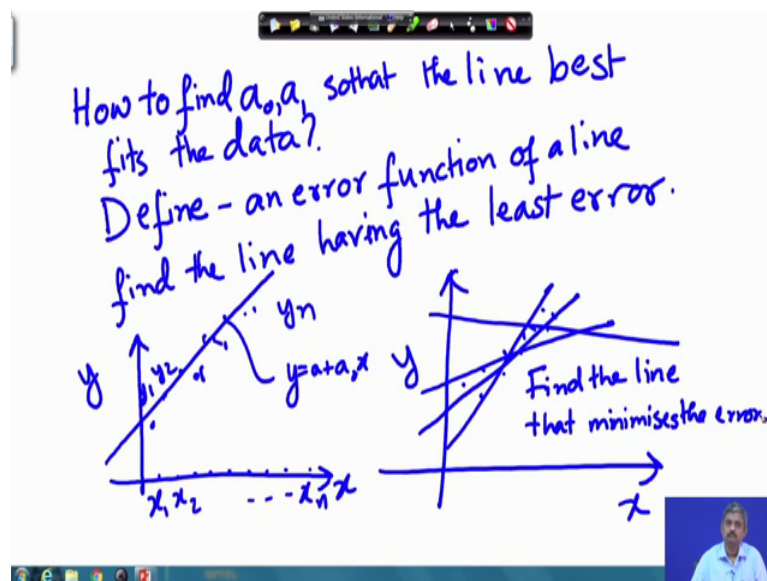 How to find a₀, a₁ so that the line best
fits the data?
Define - an error function of a line
find the line having the least error.
y
y₁ y₂
yn
y=a+a₁x
x₁ x₂ - - - xn x
y
Find the line
that minimises the error.
x